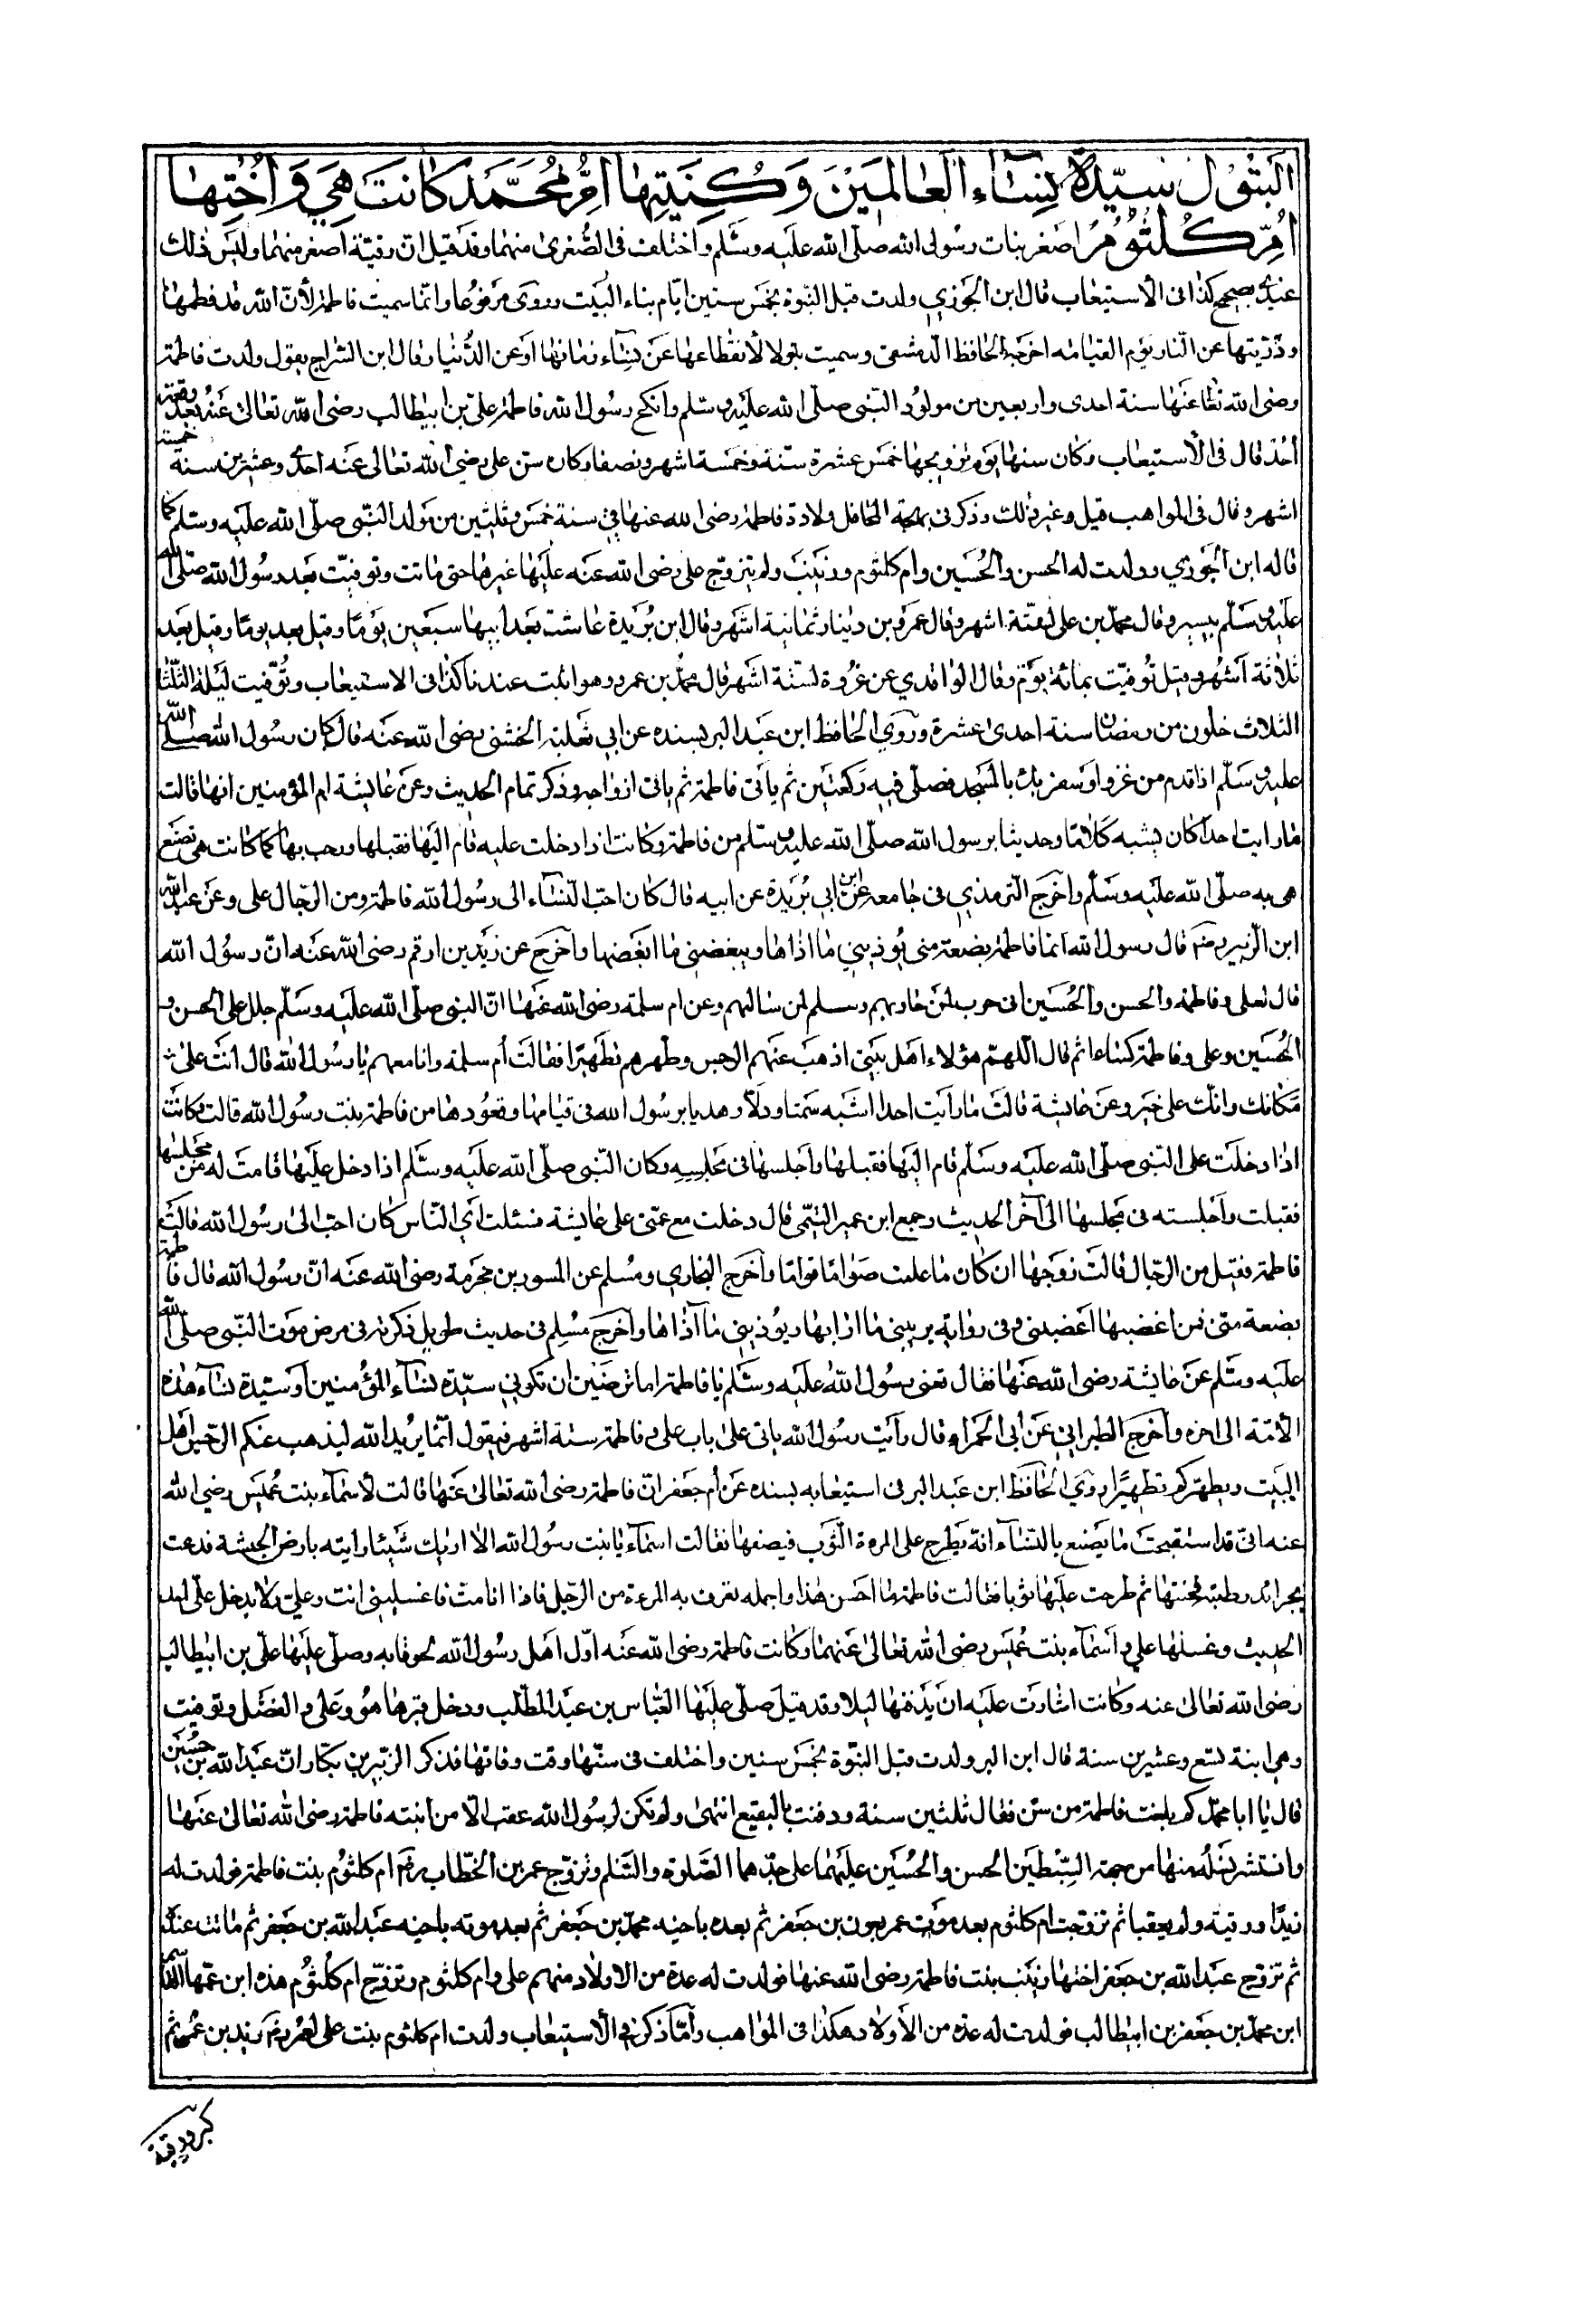 البتول سيّدة نساء العالمين وكنيتها امّ محمّد كانت هي واختها
امّ كلثوم اصغر بنات رسول الله صلّى الله عليه وسلّم واختلف فى الصّغرى منهما وقد قيل ان رقيّة اصغر منهما وليس ذلك
عندى بصحيح كذا فى الاستيعاب قال ابن الجوزي ولدت قبل النبوة بخمس سنين ايّام بناء البيت وروى مرفوعا وانّما سميت فاطمة لأنّ الله قد فطمها
وذرّيتها عن النّار يوم القيامه اخرجه الحافظ الدمشقى وسميت بتولا لانقطاعها عن نساء زمانها او عن الدّنيا وقال ابن السّراج يقول ولدت فاطمة
رضى الله تعا عنها سنة احدى واربعين من مولود النّبى صلّى الله عليه وسلّم وانكح رسول الله فاطمة علىّ بن ابيطالب رضى الله تعالى عنه بعد وقعة
أحد قال فى الاستيعاب وكان سنها يوم تزويجها خمس عشرة سنة وخمسة اشهر ونصفا وكان سن على رضى الله تعالى عنه احدى وعشرين سنة خمسة
اشهر وقال فى المواهب قيل وغير ذلك وذكر فى بهجة المحافل ولادة فاطمة رضى الله عنها في سنة خمس وثلثين من مولد النّبى صلّى الله عليه وسلّم كما
قاله ابن الجوزي وولدت له الحسن والحسين وام كلثوم وزينب ولم يتزوّج على رضى الله عنه عليها غيرها حتى ماتت وتوفيت بعد رسول الله صلى الله
عليه وسلّم بيسير وقال محمد بن على اشهر وقال عمرو بن دينار ثمانية اشهر وقال ابن بريدة عاشت بعد ابيها سبعين يوما وقيل بعد يوما وقيل بعد
ثلاثة أشهر وقيل توفيت بمائة يوم وقال الواقدي عن عروة لستة اشهر قال محمد بن عمرو وهو اثبت عندنا كذا فى الاستيعاب وتوفّيت ليلة الثلثا
الثلاث خلون من رمضان سنة احدى عشرة وروى الحافظ ابن عبد البر بسنده عن ابي ثعلبة الخشنى رضى الله عنه قال كان رسول الله صلى الله
عليه وسلّم اذا قدم من غزو او سفر بدأ بالمسجد فصلّى فيه ركعتين ثم يأتى فاطمة ثم ياتى ازواجه وذكر تمام الحديث وعن عايشة ام المؤمنين انها قالت
ما رايت احدا كان يشبه كلاما وحديثا برسول الله صلّى الله عليه وسلّم من فاطمة وكانت اذا دخلت عليه قام اليها فقبلها ورحب بها كما كانت هى تصنع
هى به صلّى الله عليه وسلّم وأخرج الترمذي فى جامعه عن ابن ابي بريدة عن ابيه قال كان احبّ النساء الى رسول الله فاطمة ومن الرّجال على وعن عبد الله
ابن الزبير رضه قال رسول الله انما فاطمة بضعة منى يوذيني ما اذاها ويبغضنى ما ابغضها وأخرج عن زيد بن ارقم رضى الله عنه انّ رسول الله
قال لعلى وفاطمه والحسن والحسين انى حرب لمن حاربهم وسلم لمن سالمهم وعن ام سلمة رضى الله عنها انّ النبى صلّى الله عليه وسلّم جلل على الحسن و
الحسين وعلى وفاطمة كساءا ثم قال اللهمّ هؤلاء اهل بيتى اذهب عنهم الرجس وطهرهم تطهيرا فقالت أم سلمة وانا معهم يا رسول الله قال انت على
مكانك وانك على خير وعن عايشة قالت ما رأيت احدا اشبه سمتا ودلّا وهديا برسول الله فى قيامها وقعودها من فاطمة بنت رسول الله قالت وكانت
اذا دخلت على النّبى صلّى الله عليه وسلّم قام اليها فقبلها وأجلسها فى مجلسه وكان النّبى صلّى الله عليه وسلّم اذا دخل عليها قامت له من مجلسها
فقبلت وأجلسته فى مجلسها الى آخر الحديث وجمع ابن عمير التيمى قال دخلت مع عمّتى على عايشة فسئلت أي النّاس كان احبّ الى رسول الله قالت
فاطمة فقيل من الرّجال قالت زوجها ان كان ما علمت صوّاما قوّاما وأخرج البخاري ومسلم عن المسور بن مخرمة رضى الله عنه انّ رسول الله قال فاطمة
بضعة منّى فمن اغضبها اغضبنى وفى رواية يريبنى ما ارابها ويوذيني ما آذاها وأخرج مسلم فى حديث طويل ذكرناه فى مرض موت النّبى صلّى الله
عليه وسلّم عن عايشة رضى الله عنها فقال تعنى رسول الله عليه وسلّم يا فاطمة اما ترضين ان تكونى سيّدة نساء المؤمنين او سيّدة نساء هذه
الامّة الى اخره وأخرج الطبراني عن أبي الحمراء قال رأيت رسول الله ياتى على باب على وفاطمة ستة اشهر فيقول انّما يريد الله ليذهب عنكم الرّجس اهل
البيت ويطهّركم تطهيرًا وروي الحافظ ابن عبد البر فى استيعابه بسنده عن أم جعفر انّ فاطمة رضى الله تعالى عنها قالت لأسماء بنت عميس رضى الله
عنه انّى قد استقبحت ما يصنع بالنساء انّه يطرح على المرءة الثوب فيصفها فقالت اسماء يا بنت رسول الله الا اريك شيئا رايته بارض الحبشة فدعت
بجرائد رطبة فحنتها ثم طرحت عليها ثوبا فقالت فاطمة ما احسن هذا واجمله تعرف به المرءة من الرّجل فاذا انا مت فاغسليني انت وعلىّ ولا يدخل علىّ احد
الحديث وغسلها علي واسماء بنت عميس رضى الله تعالى عنهما وكانت فاطمة رضى الله عنه اوّل اهل رسول الله لحوقا به وصلّى عليها علّى بن ابيطالب
رضى الله تعالى عنه وكانت اشارت عليه ان يدفنها ليلا وقد قيل صلّى عليها العبّاس بن عبد المطّلب ودخل قبرها هو وعلى والفضل وتوفيت
وهى ابنة تسع وعشرين سنة قال ابن البر ولدت قبل النبّوة بخمس سنين واختلف فى سنّها وقت وفاتها فذكر الزّبير بن بكّار انّ عبد الله بن حسين
قال يا ابا محمّد كم بلغت فاطمة من سنّ فقال ثلثين سنة ودفنت بالبقيع انتهى ولم تكن لرسول الله عقب الّا من ابنته فاطمة رضى الله تعالى عنها
وانتشر نسله منها من جهة السّبطين الحسن والحسين عليهما على جدّهما الصّلوة والسّلم وتزوّج عمر بن الخطّاب رضه ام كلثوم بنت فاطمة فولدت له
زيدًا ورقية ولم يعقبا ثم تزوّجت ام كلثوم بعد موت عمر بعون بن جعفر ثم بعده باخيه محمّد بن جعفر ثم بعد موته باخيه عبد الله بن جعفر ثم ماتت عنده
ثم تزوّج عبد الله بن جعفر اختها زينب بنت فاطمة رضى الله عنها فولدت له عدة من الاولاد منهم على وام كلثوم وتزوّج ام كلثوم هذه ابن عمّها القاسم
ابن محمّد بن جعفر بن ابيطالب فولدت له عدة من الأولاد هكذا فى المواهب وأمّا ذكر في الأستيعاب ولدت ام كلثوم بنت على لعمر رضه زيد بن عمر ثم